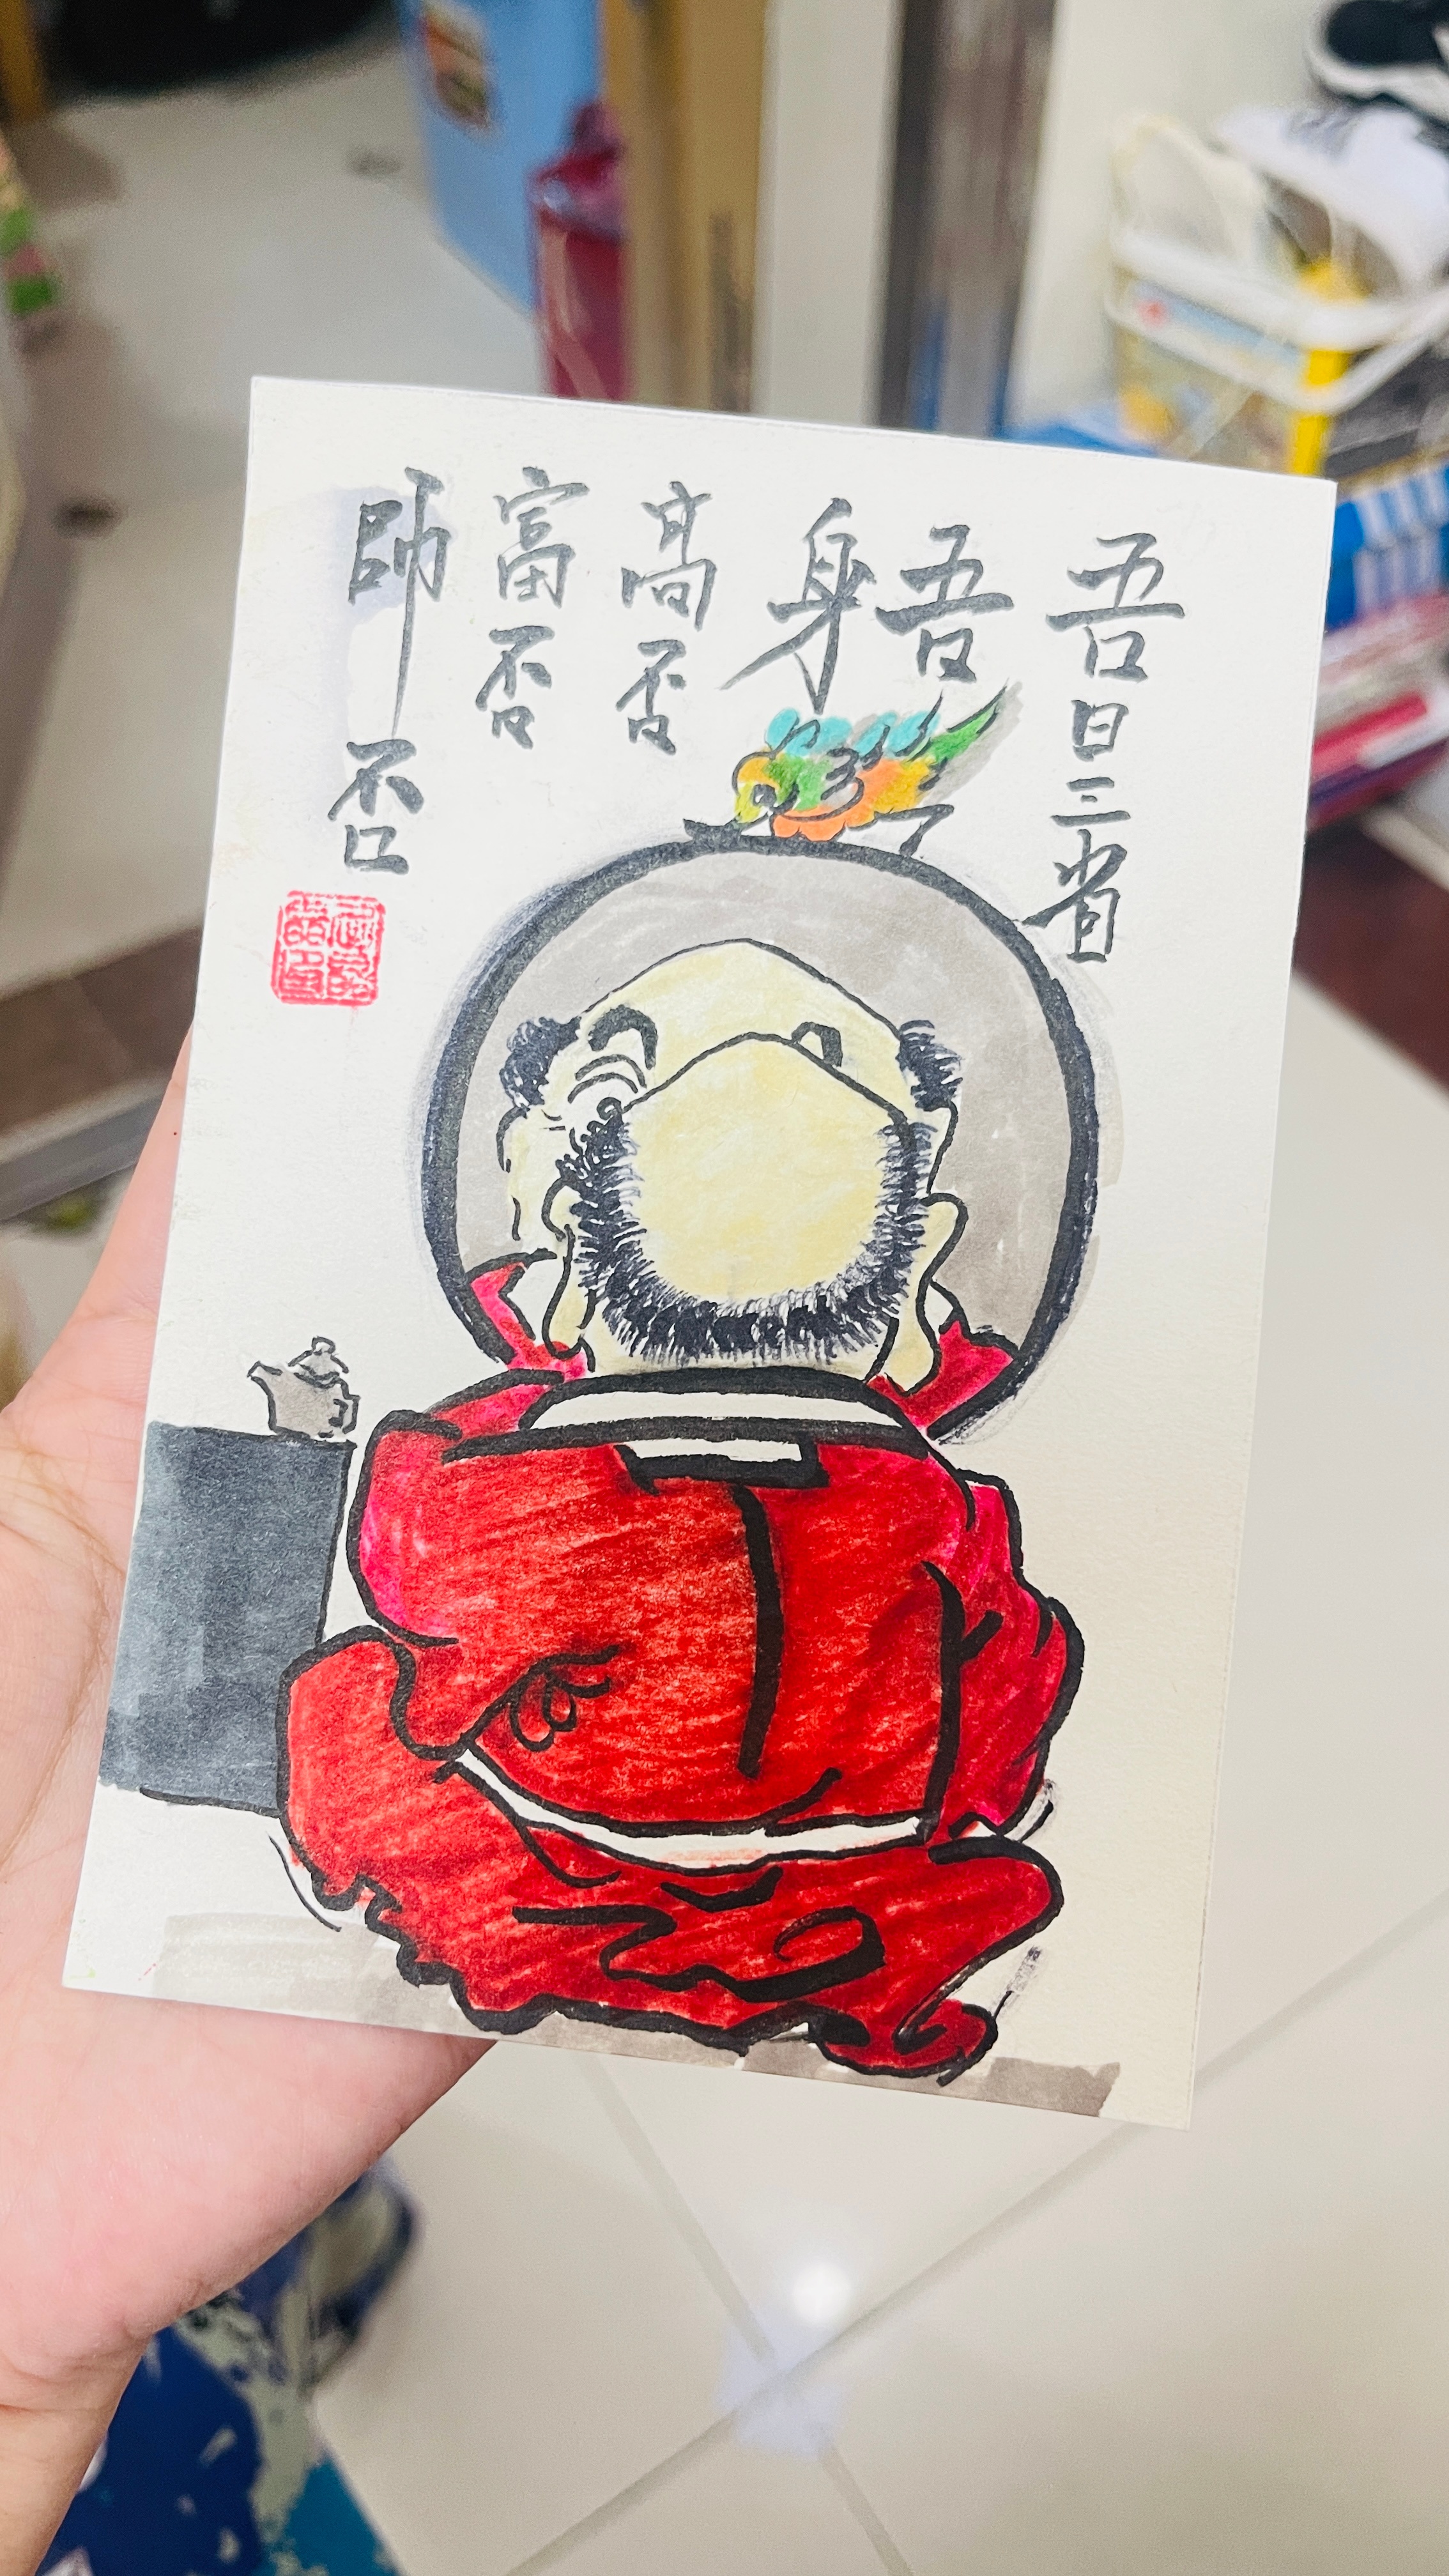 吾日三省
吾身
高否
富否
師否